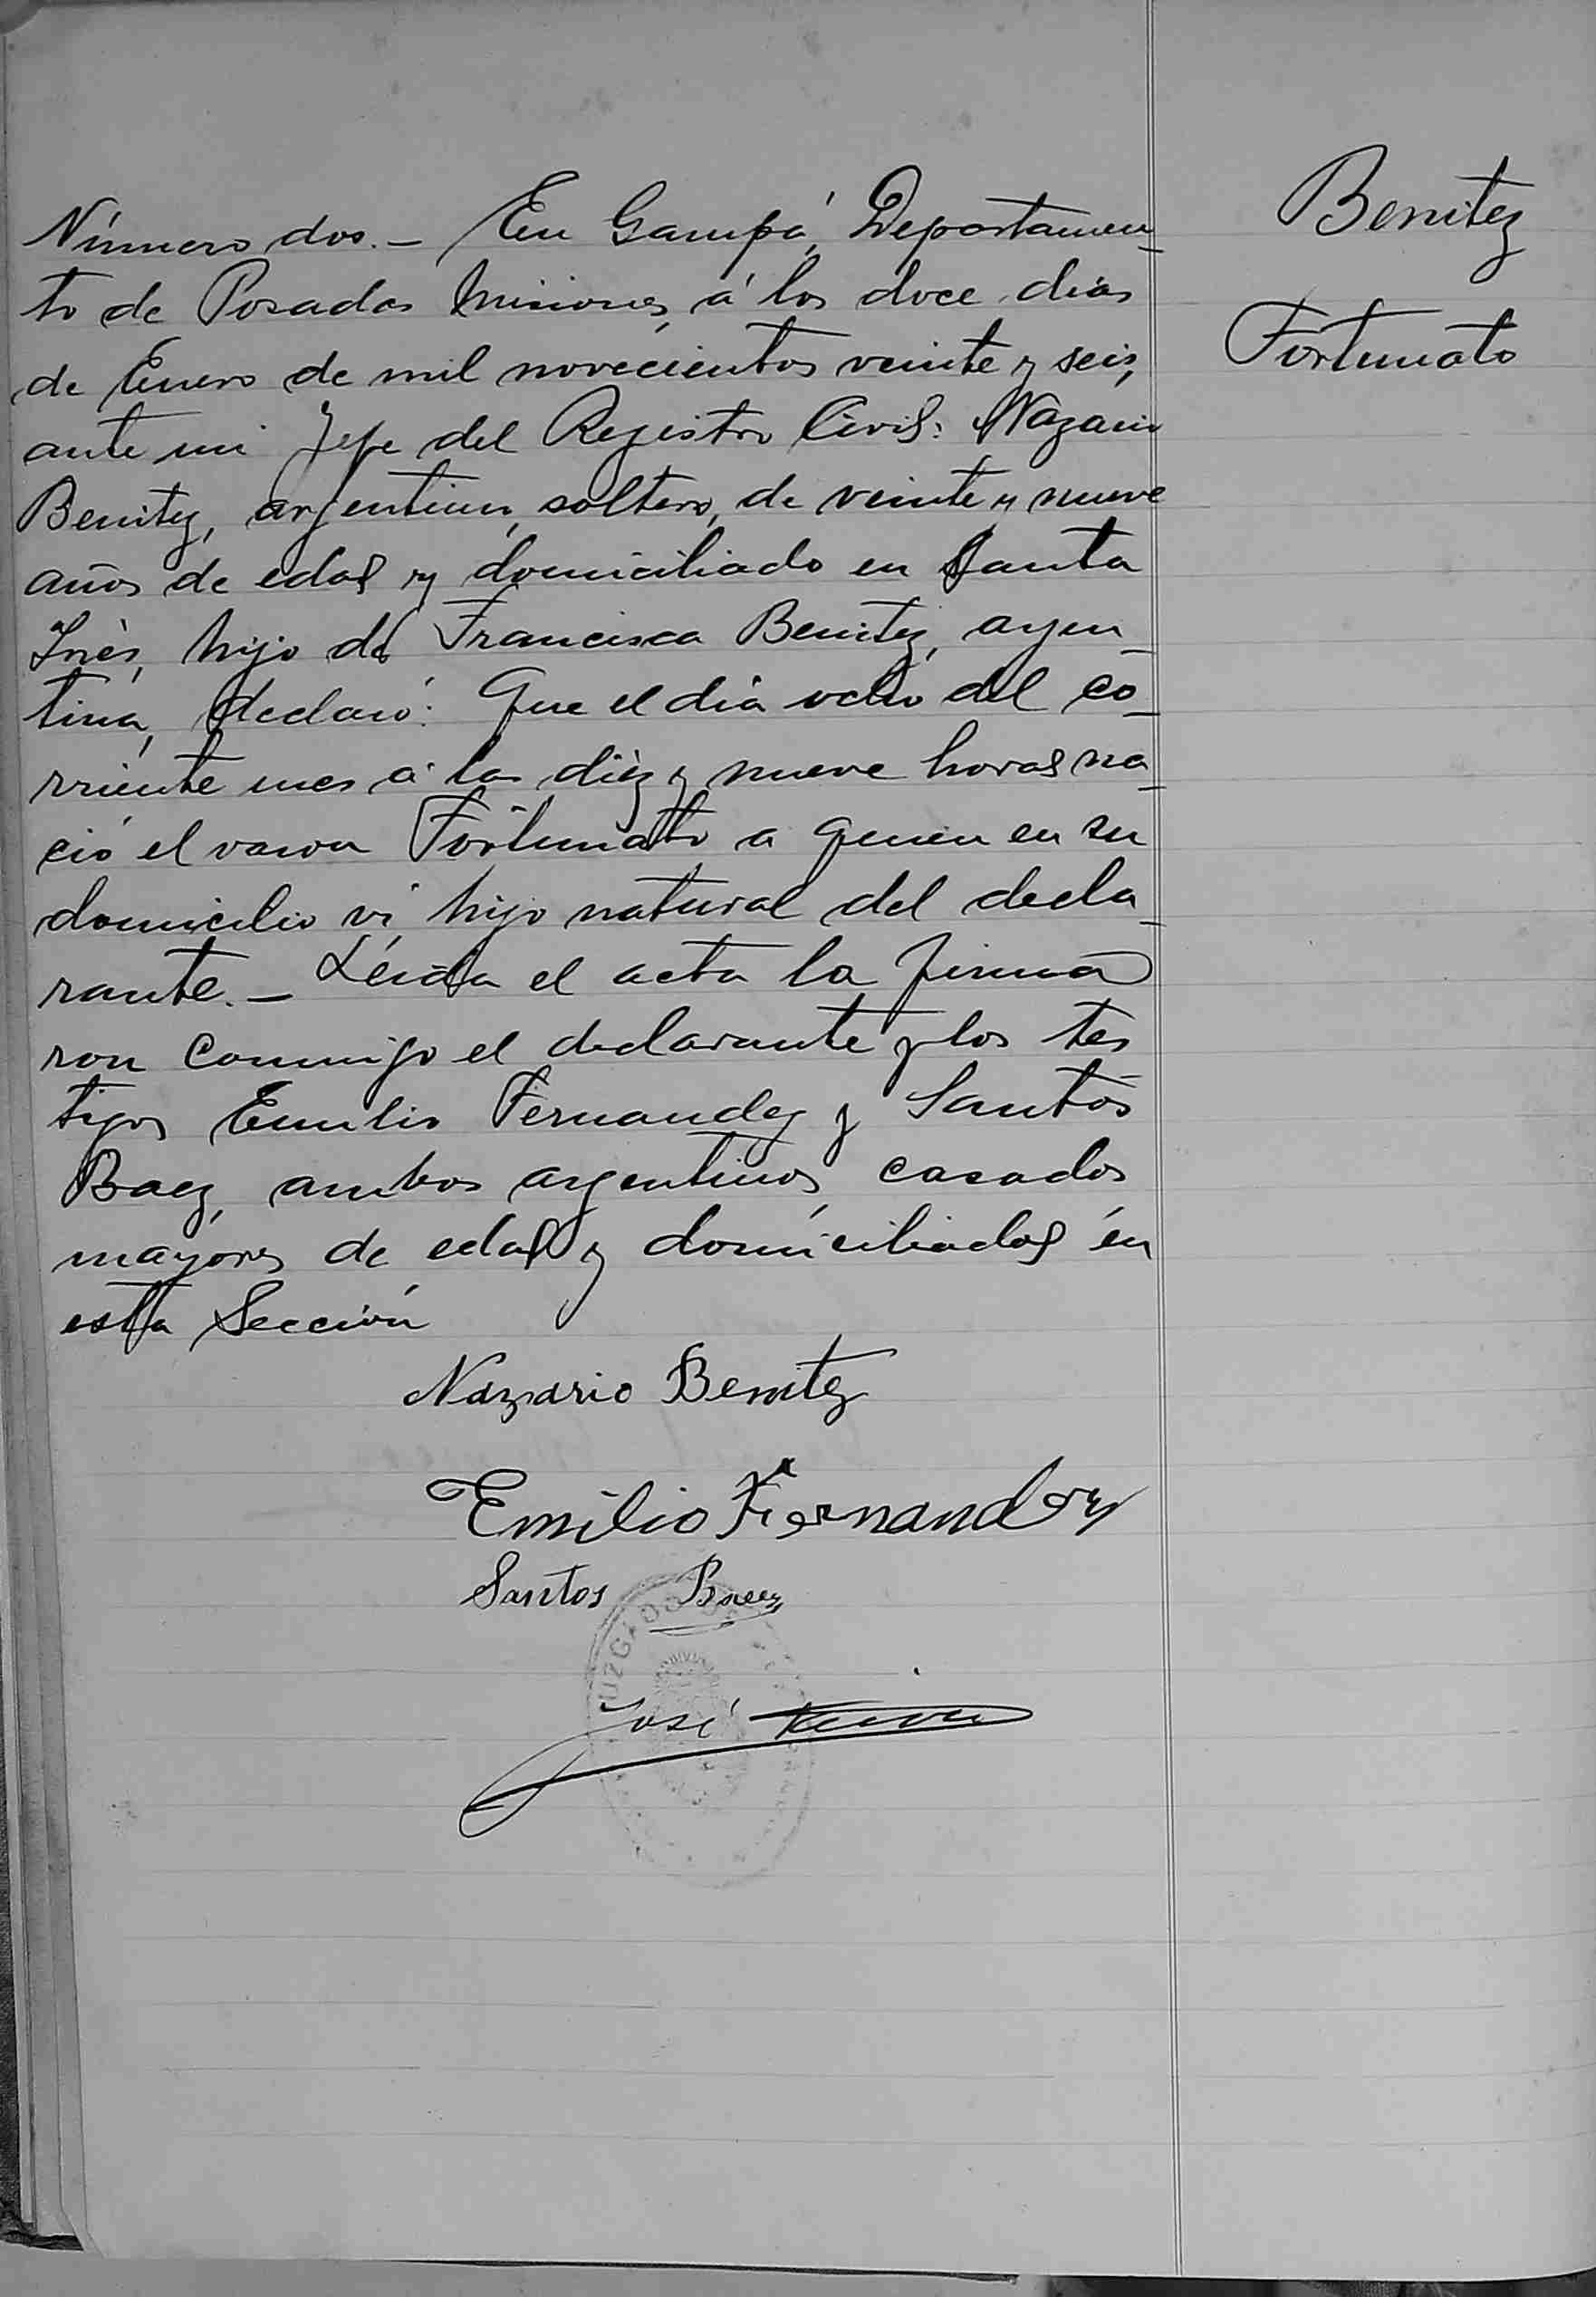 Número dos.- En Garupá, Departamen-
to de Posadas Misiones, á los doce dias
de Enero de mil novecientos veinte y seis,
ante mi Jefe del Registro Civil: Nazario
Benitez, argentino, soltero, de veinte y nueve
años de edad y domiciliado en Santa
Inés, hijo de Francisca Benitez, argen-
tina, declaró: Que el dia ocho del co-
rriente mes á las diéz y nueve horas na-
ció el varon Fortunato a quien en su
domicilio ví hijo natural del decla-
rante.- Leída el acta la firma
ron conmigo el declarante y los tes
tigos Emilio Fernandez y Santos
Baez, ambos argentinos, casados
mayores de edad y domiciliados en
esta Sección
Nazario Benitez
Emilio Fernandez
Santos Baez
José
JUZGADO DE
Benitez
Fortunato